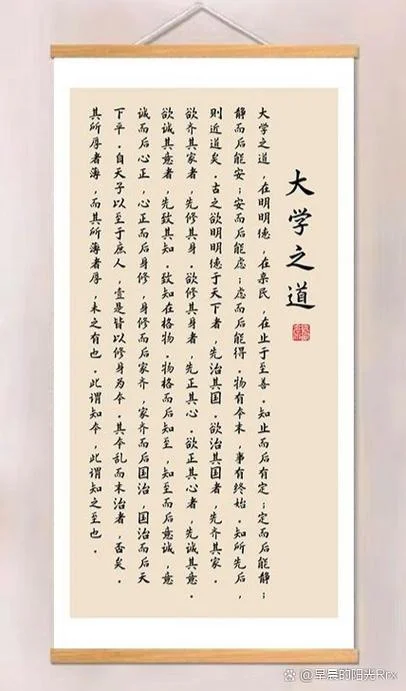 大学之道
大学之道,在明明德,在亲民,在止于至善.知止而后有定;定而后能静;
静而后能安;安而后能虑;虑而后能得.物有本末,事有终始.知所先后,
则近道矣.古之欲明明德于天下者,先治其国.欲治其国者,先齐其家.
欲齐其家者,先修其身.欲修其身者,先正其心.欲正其心者,先诚其意.
欲诚其意者,先致其知.致知在格物.物格而后知至,知至而后意诚,意
诚而后心正,心正而后身修,身修而后家齐,家齐而后国治,国治而后天
下平.自天子以至于庶人,壹是皆以修身为本.其本乱而末治者,否矣.
其所厚者薄,而其所薄者厚,未之有也.此谓知本,此谓知之至也.
@早晨的阳光Rrx